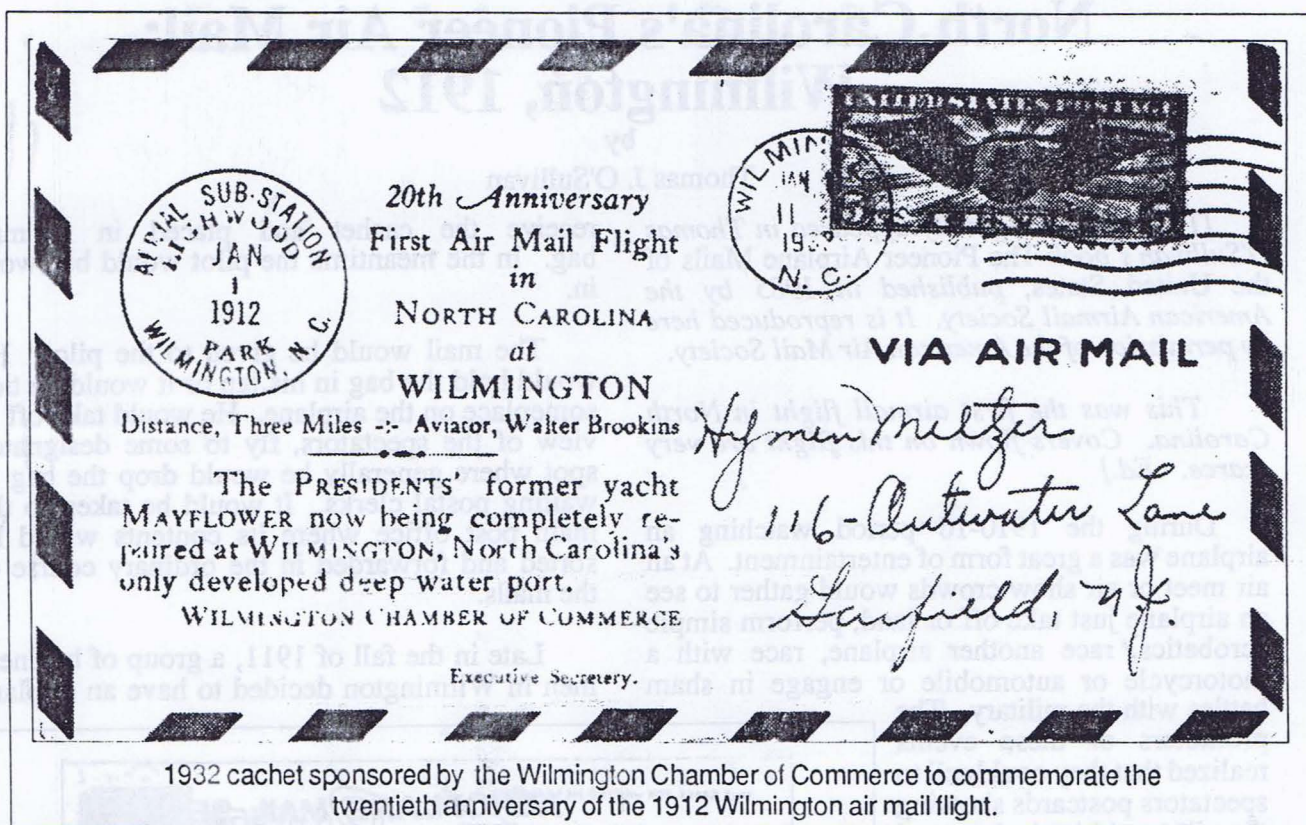 AERIAL SUB-STATION
HIGHWOOD
JAN
1
1912
PARK
WILMINGTON, N.C.
20th Anniversary
First Air Mail Flight
in
NORTH CAROLINA
at
WILMINGTON
Distance, Three Miles -:- Aviator, Walter Brookins
THE PRESIDENTS' former yacht
MAYFLOWER now being completely re-
paired at WILMINGTON, North Carolina's
only developed deep water port.
WILMINGTON CHAMBER OF COMMERCE
Executive Secretery.
WILMIN
JAN
11
193
N.C.
VIA AIR MAIL
Outwater Lane
Garfield N.J.
1932 cachet sponsored by the Wilmington Chamber of Commerce to commemorate the
twentieth anniversary of the 1912 Wilmington air mail flight.